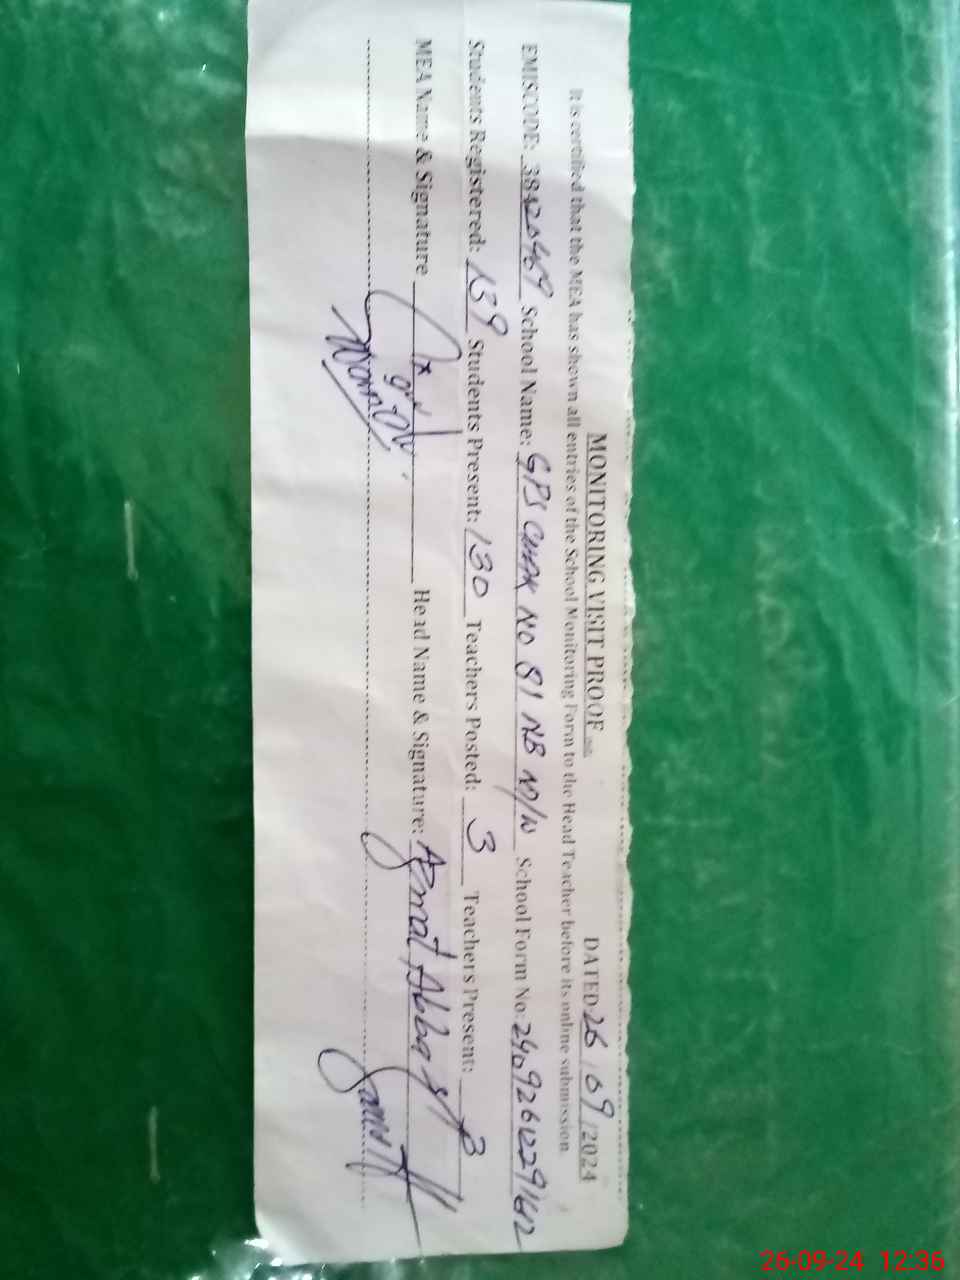 MONITORING VISIT PROOF DATED: 26/09/2024
It is certified that the MEA has shown all entries of the School Monitoring Form to the Head Teacher before its online submission
EMISCODE: 38420469 School Name: GPS CHAK NO 81 NB N/W School Form No: 240926122911612
Students Registered: 139 Students Present: 130 Teachers Posted: 3 Teachers Present: 3
MEA Name & Signature Head Name & Signature: Azmat Abbas
26-09-24 12:36